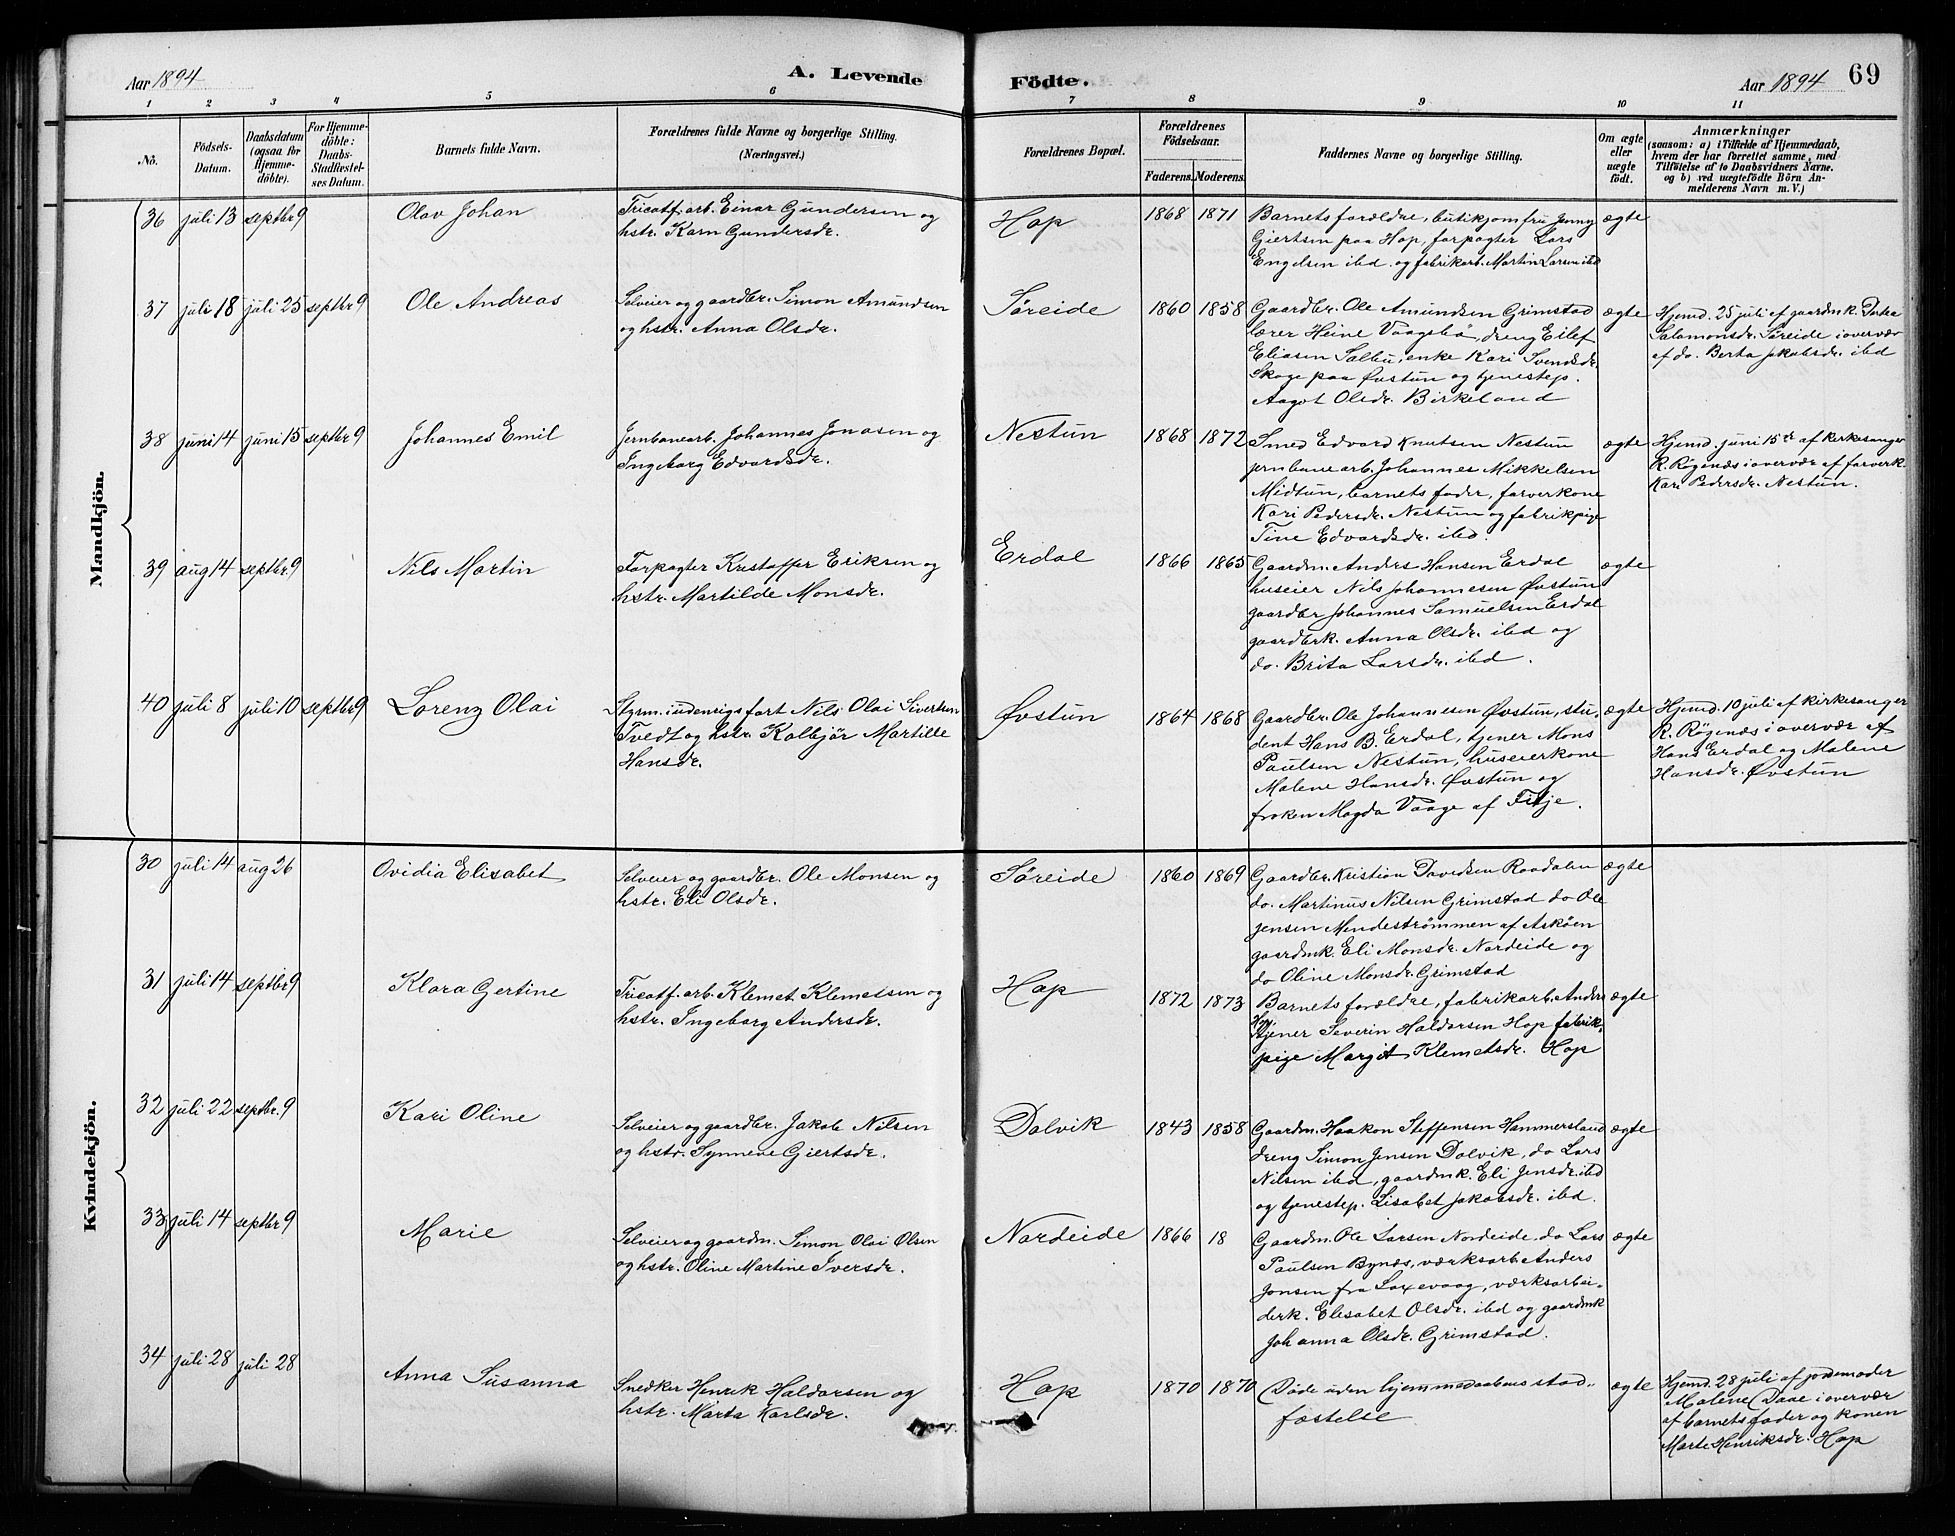 Aar 1894
A. Levende
Födte.
Aar 1894
69
1 2 3 4 5 6 7 8 9 10 11
No.
Födsels-
Datum.
Daabsdatum
(ogsaa for
Hjemme-
döbte).
For Hjemme-
döbte:
Daabs-
Stadfæstel-
ses Datum.
Barnets fulde Navn.
Forældrenes fulde Navne og borgerlige Stilling.
(Næringsvei.)
Forældrenes Bopæl.
Forældrenes
Födselsaar.
Faderens. Moderens.
Faddernes Navne og borgerlige Stilling.
Om ægte
eller
uægte
födt.
Anmærkninger
(saasom: a) i Tilfælde af Hjemmedaab,
hvem der har forrettet samme, med
Tilföielse af to Daabsvidners Navne.
og b) ved uægtefödte Börn An-
melderens Navn m. V.)
Mandkjön.
36 juli 13 septbr 9
Olav Johan
Tricotf. arb. Einar Gundersen og
hstr. Karn Gundersdr.
Hop
1868 1871
Barnets forældre, butikjomfru Jenny
Giertsen paa Hop, forpagter Lars
Engelsen ibd. og fabrikarb. Martin Larsen ibd
ægte
37 juli 18 juli 25 septbr 9
Ole Andreas
Selveier og gaardbr. Simon Amundsen
og hstr. Anna Olsdr.
Søreide
1860 1858
Gaardbr. Ole Amundsen Grimstad
lærer Heine Vaagsbø, dreng Eilef
Eliasen Salbu, enke Kari Svendsdr.
Skage paa Øvstun og tjenestep.
Aagot Olsdr. Birkeland
ægte
Hjemd. 25 juli af gaardmk. Dortea
Salamonsdr. Søreide i overvær
af do. Berta Jakobsdr. ibd
38 juni 14 juni 15 septbr 9
Johannes Emil
Jernbanearb. Johannes Jonasen og
Ingeborg Edvardsdr.
Nestun
1868 1872
Smed Edvard Knutsen Nestun
jernbanearb. Johannes Mikkelsen
Midtun, barnets fader, farverkone
Kari Pedersdr. Nestun og fabrikpige
Tine Edvardsdr. ibd.
ægte
Hjemd. juni 15de af kirkesanger
R. Røgenæs i overvær af farverk.
Kari Pedersdr. Nestun.
39 aug 14 septbr 9
Nils Martin
Forpagter Kristoffer Eriksen og
hstr. Martilde Monsdr.
Erdal
1866 1865
Gaardm. Anders Hansen Erdal
huseier Nils Johannesen Øvstun
gaardbr Johannes Samuelsen Erdal
gaardbrk. Anna Olsdr. ibd og
do. Brita Larsdr. ibd.
ægte
40 juli 8 juli 10 septbr 9
Lorenz Olai
Styrm. i udenrigsfart Nils Olai Sivertsen
Tvedt og hstr. Kolbjør Martille
Hansdr.
Øvstun
1864 1868
Gaardbr. Ole Johannesen Øvstun, stu-
dent Hans B. Erdal, tjener Mons
Paulsen Nestun, huseierkone
Malene Hansdr. Øvstun og
frøken Magda Vaage af Fitje.
ægte
Hjemd. 10 juli af kirkesanger
R. Røgenæs i overvær af
Hans Erdal og Malene
Hansdr. Øvstun
Kvindekjön.
30 juli 14 aug 26
Ovidia Elisabet
Selveier og gaardbr. Ole Monsen og
hstr. Eli Olsdr.
Søreide
1860 1869
Gaardbr. Kristian Davidsen Raadalen
do. Martinus Nilsen Grimstad do Ole
Jensen Mindestrømmen af Askøen
gaardmk. Eli Monsdr. Nordeide og
do Oline Monsdr. Grimstad
ægte
31 juli 14 septbr 9
Klara Gertine
Tricotf. arb. Klemet Klemetsen og
hstr. Ingeborg Andersdr.
Hop
1872 1873
Barnets forældre, fabrikarb. Anders
Hop,
tjener Severin Haldorsen Hop fabrik-
pige Margit Klemetsdr. Hop
ægte
32 juli 22 septbr. 9
Kari Oline
Selveier og gaardbr. Jakob Nilsen
og hstr. Synneve Giertsdr.
Dolvik
1843 1858
Gaardm. Haakon Steffensen Hammersland
dreng Simon Jensen Dolvik, do Lars
Nilsen ibd, gaardmk. Eli Jensdr. ibd
og tjenestep. Lisabet Jakobsdr. ibd.
ægte
33 juli 14 septbr 9
Marie
Selveier og gaardm. Simon Olai Olsen
og hstr. Oline Martine Iversdr.
Nordeide
1866 18
Gaardm. Ole Larsen Nordeide, do Lars
Paulsen Bynes, værksarb. Anders
Jonsen fra Laxevaag, værksarbei-
derk. Elisabet Olsdr. ibd og gaardmk
Johanna Olsdr. Grimstad.
ægte
34 juli 28 juli 28
Anna Susanna
Snedker Henrik Haldorsen og
hstr. Marta Karlsdr.
Hop
1870 1870
Døde uden hjemmedaabens stad-
fæstelse
ægte
Hjemd. 28 juli af jordemoder
Malene Daae i overvær
af barnets fader og konen
Marte Henriksdr. Hop